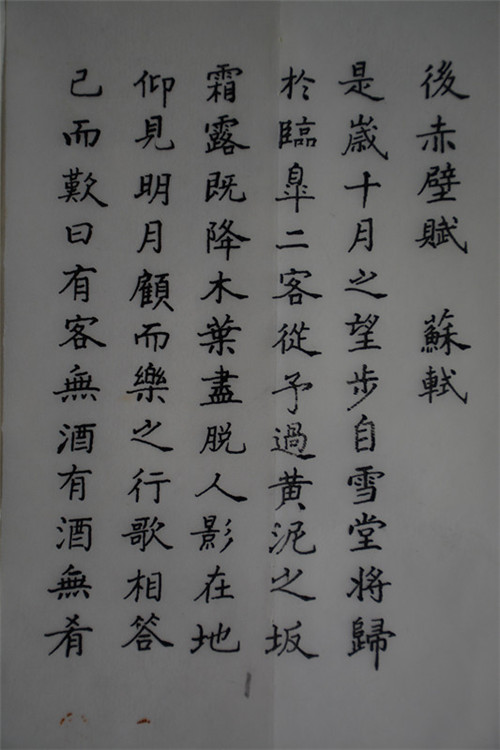 後赤壁賦 蘇軾
是歲十月之望步自雪堂將歸
於臨臯二客從予過黄泥之坂
霜露既降木葉盡脱人影在地
仰見明月顧而樂之行歌相答
已而歎曰有客無酒有酒無肴